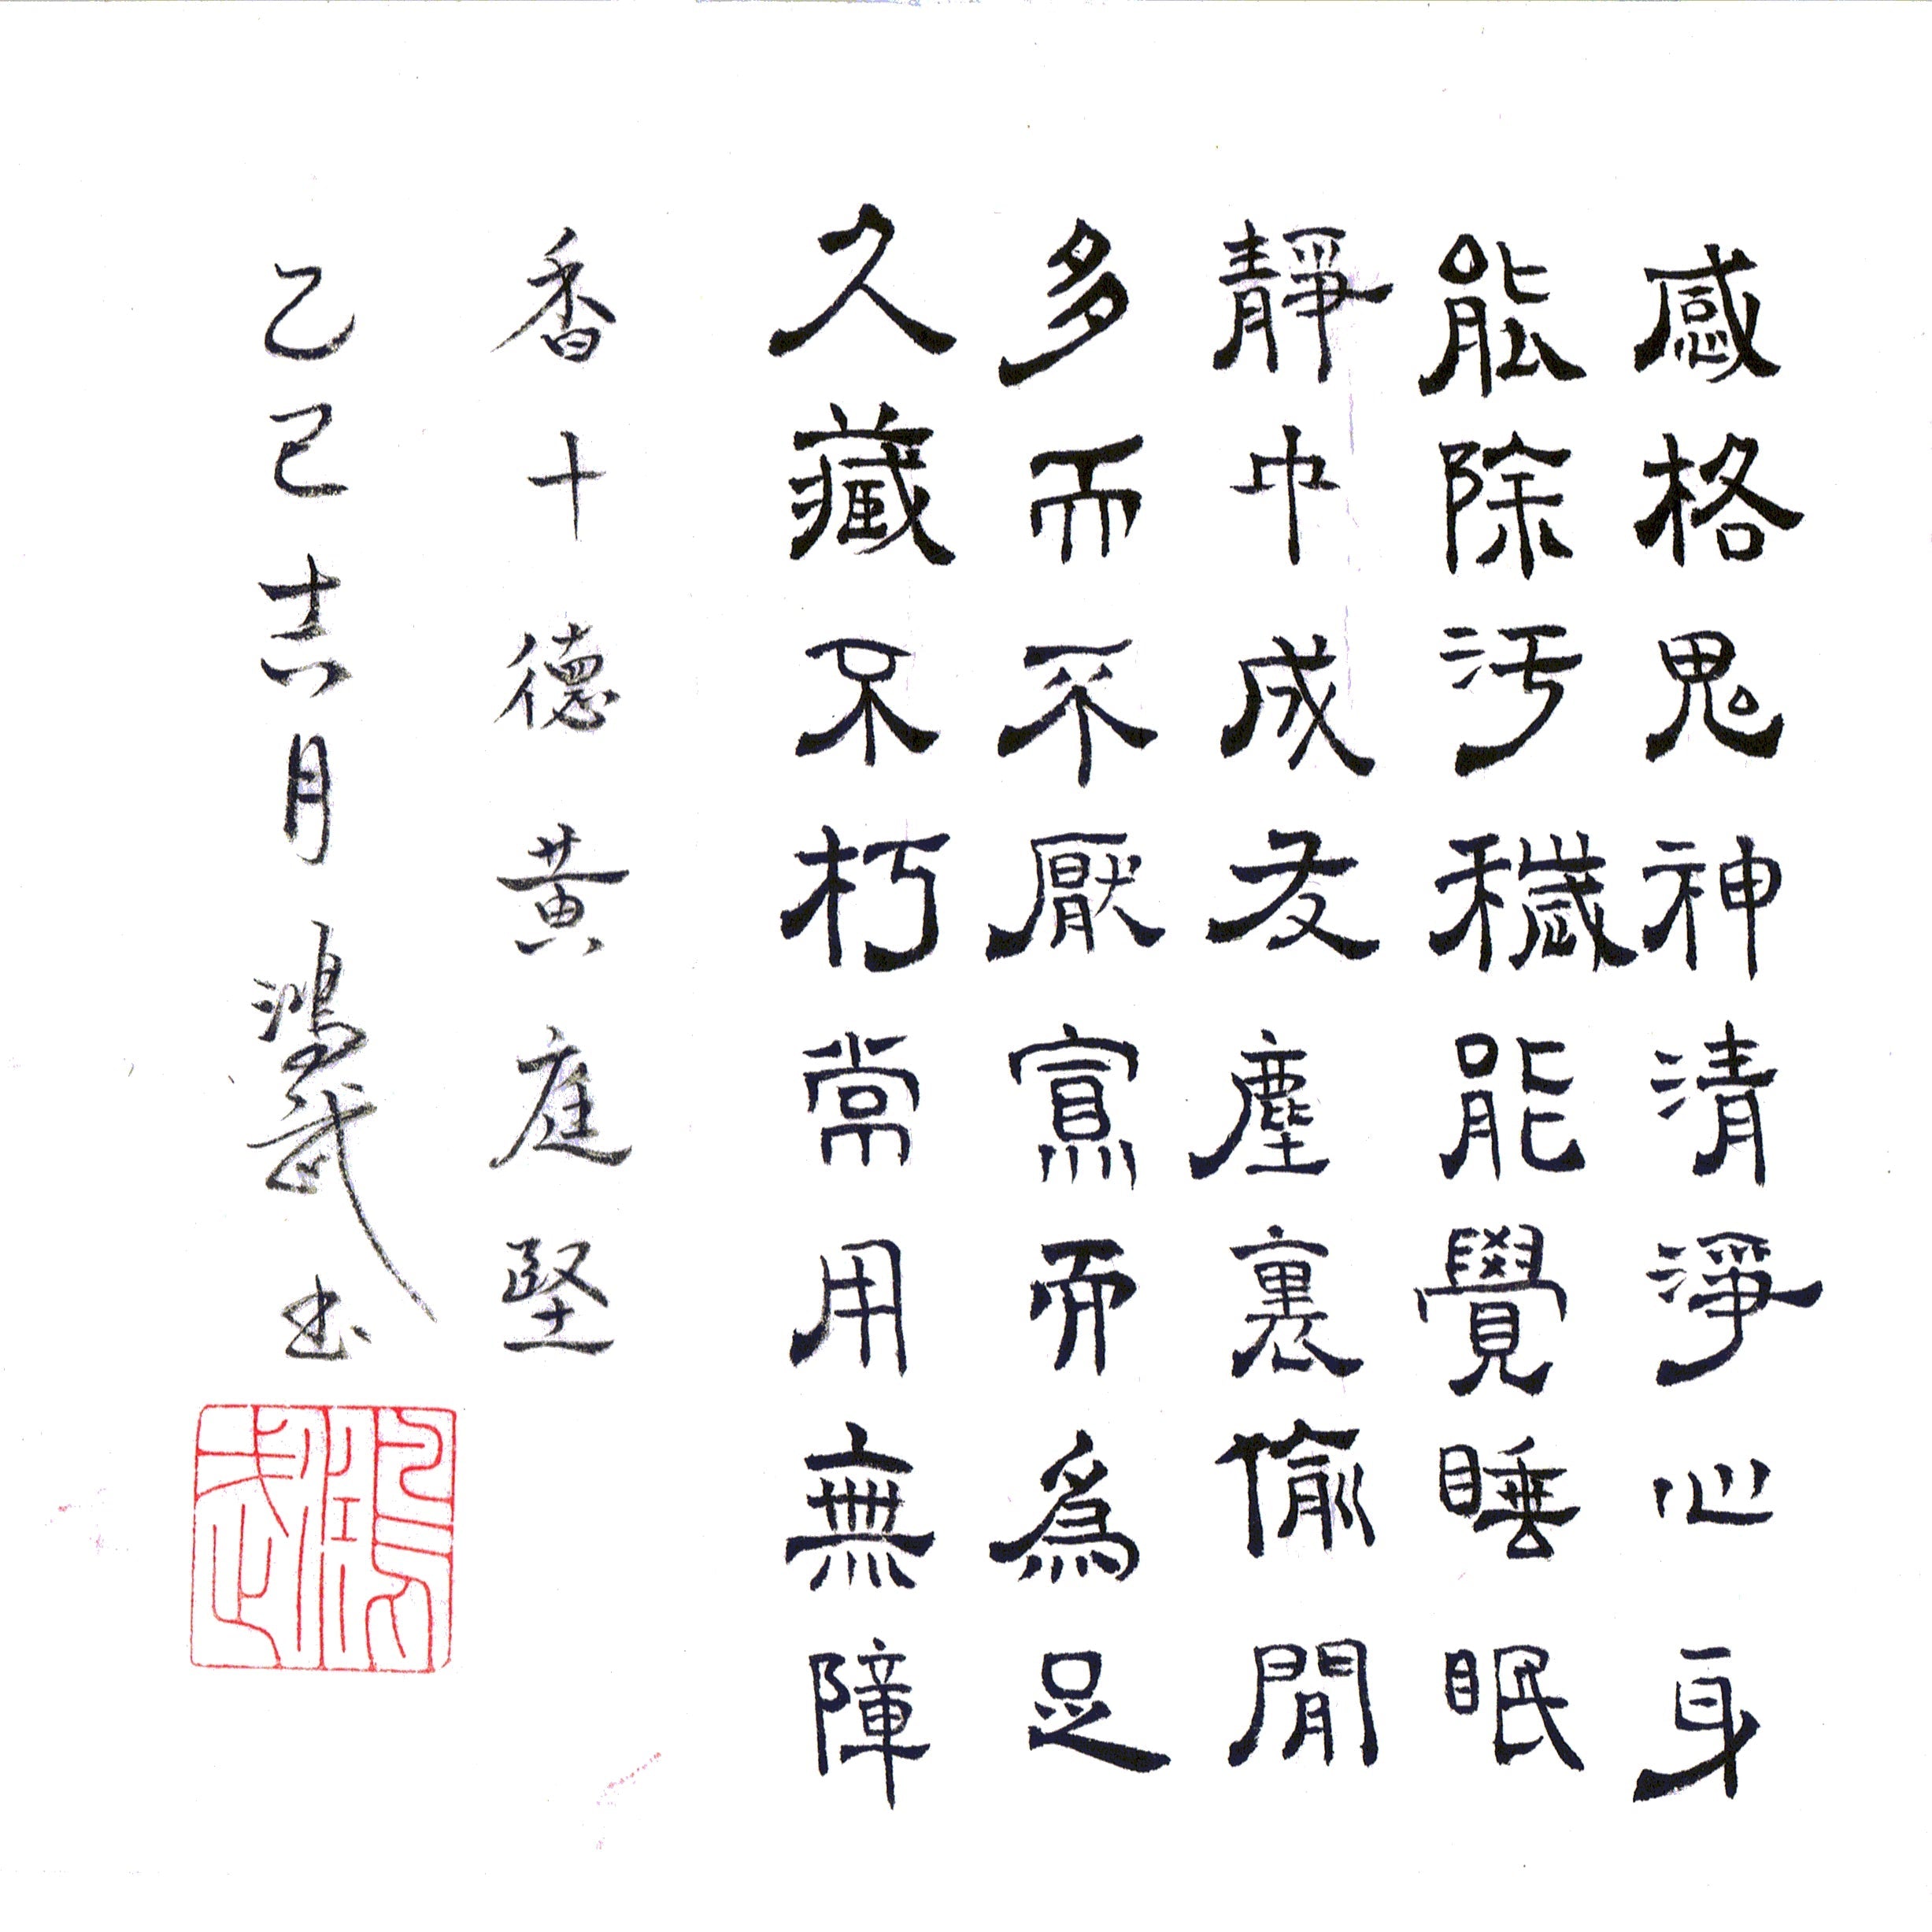 感格鬼神清淨心身
能除汚穢能覺睡眠
靜中成友塵裏偷閒
多而不厭寡而為足
久藏不朽常用無障
香十德黃庭堅
乙巳十一月鴻武书
鴻武